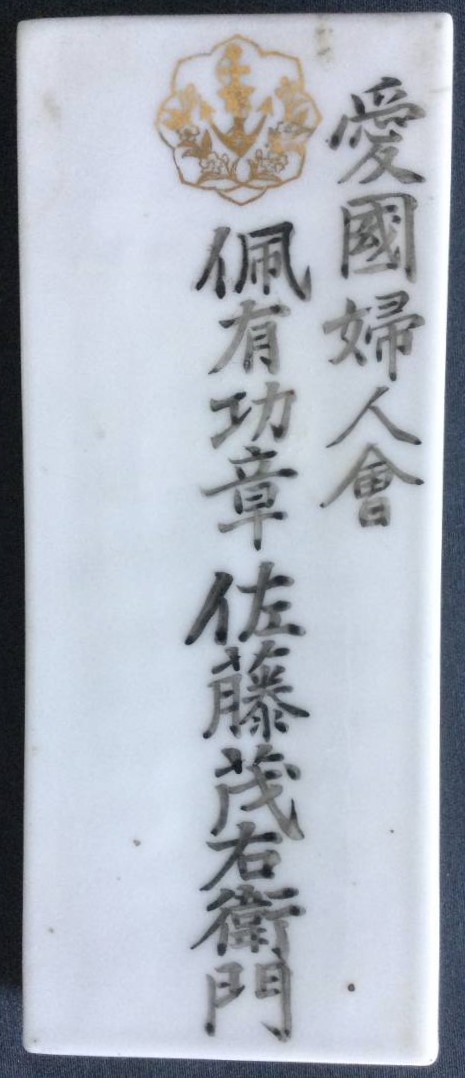 愛國婦人會
佩有功章 佐藤茂右衛門